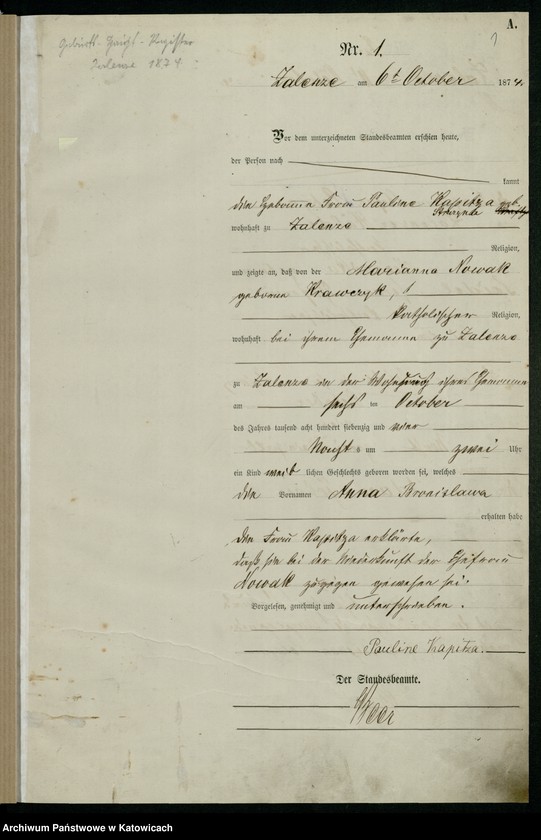 A.
1
Geburts-Haupt-Register
Zalenze 1874
Nr. 1.
Zalenze am 6t October 1874.
Vor dem unterzeichneten Standesbeamten erschien heute,
der Person nach
kannt
die Hebamme Frau Pauline Kapitza geb.
wohnhaft zu Zalenze
Religion,
und zeigte an, daß von der Marianna Nowak
geborene Krawczyk,
katholischer Religion,
wohnhaft bei ihrem Ehemanne zu Zalenze
zu Zalenze in der Wohnung ihres Ehemannes
am sechs ten October
des Jahres tausend acht hundert siebenzig und vier
Nachts um zwei Uhr
ein Kind weib lichen Geschlechts geboren worden sei, welches
die Vornamen Anna Bronislawa
erhalten habe
Die Frau Kapitza erklärte,
daß sie bei der Niederkunft der Ehefrau
Nowak zugegen gewesen sei.
Vorgelesen, genehmigt und unterschrieben.
Pauline Kapitza.
Der Standesbeamte.
Archiwum Państwowe w Katowicach